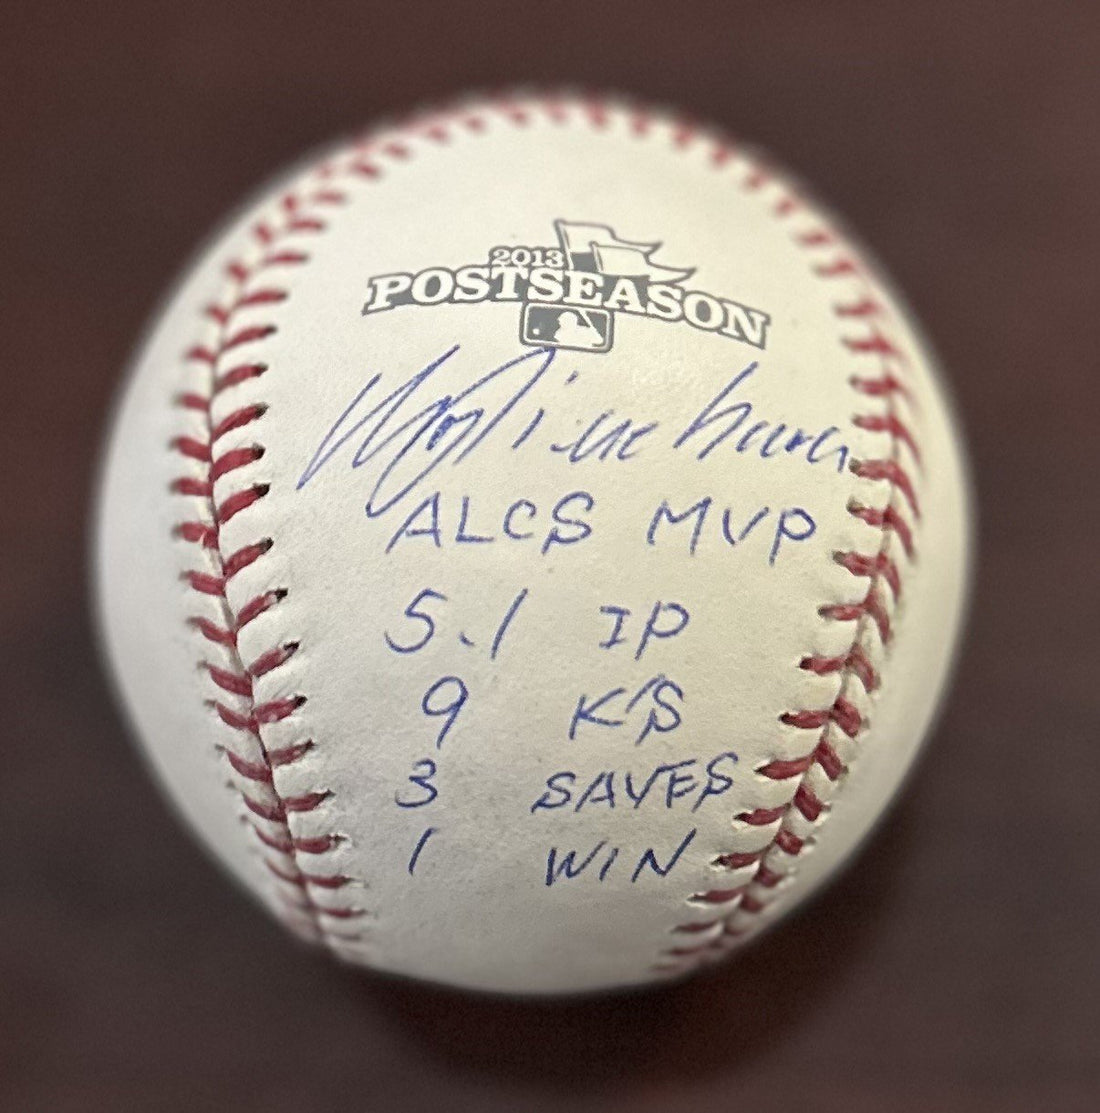 2013
POSTSEASON
ALCS MVP
5.1 IP
9 K'S
3 SAVES
1 WIN